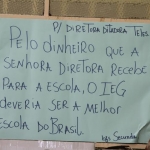 P/ DIRETORA DITADORA TELES
PELO DINHEIRO QUE A
SENHORA DIRETORA RECEBE
PARA A ESCOLA, O IEG
DEVERIA SER A MELHOR
ESCOLA DO BRASIL.